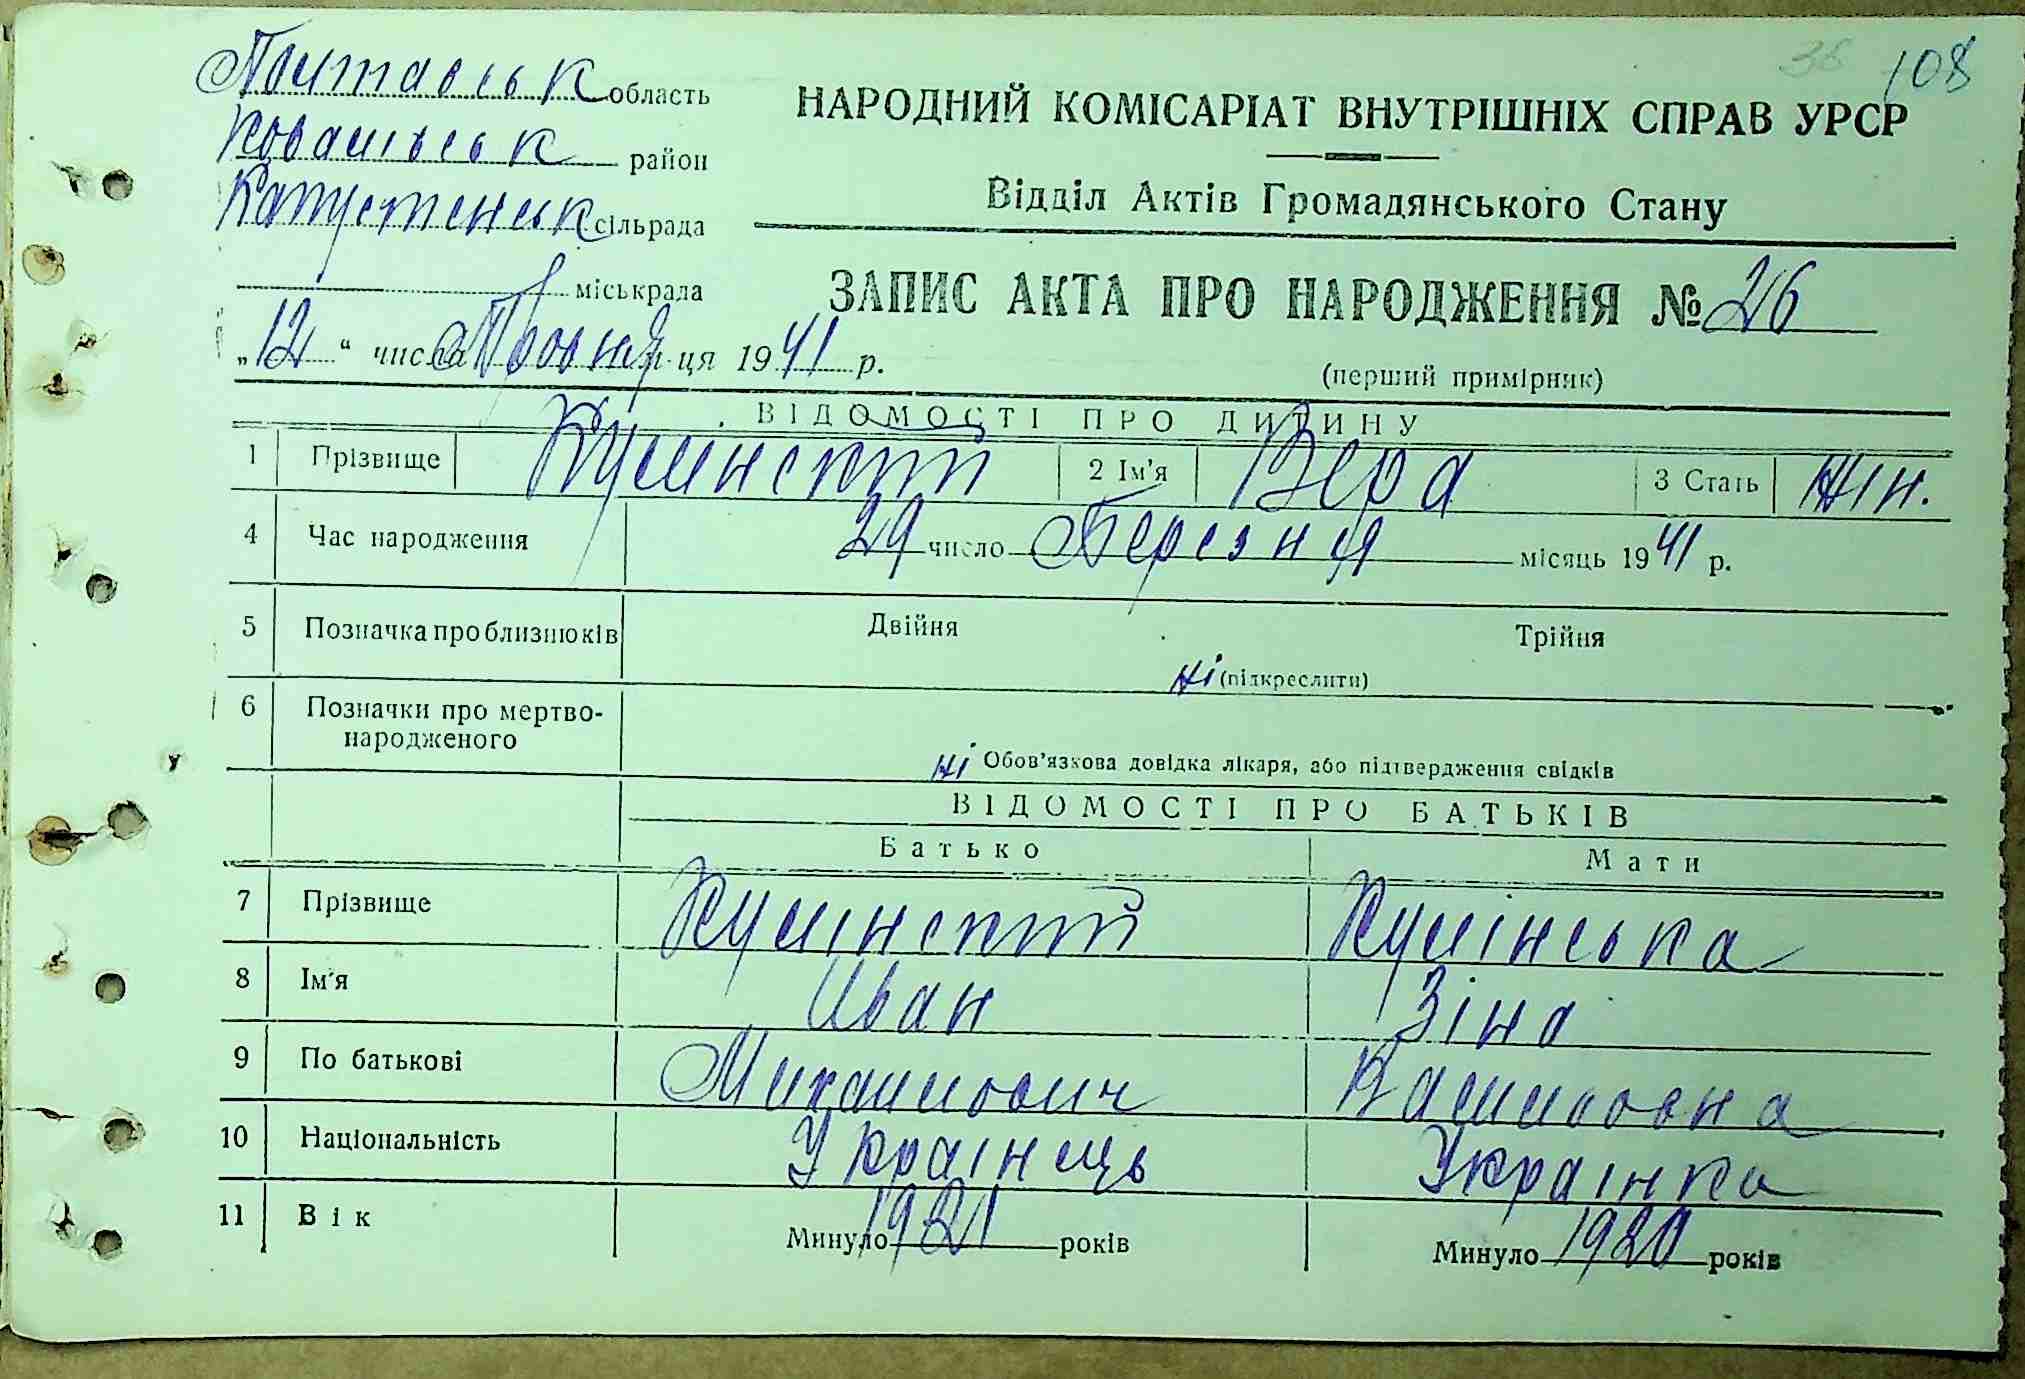 36 108
Полтавськ область
НАРОДНИЙ КОМІСАРІАТ ВНУТРІШНІХ СПРАВ УРСР
район
Відділ Актів Громадянського Стану
Капустенськ сільрада
міськрада
ЗАПИС АКТА ПРО НАРОДЖЕННЯ № 26
„12“ числа м-ця 1941 р.
(перший примірник)
ВІДОМОСТІ ПРО ДИТИНУ
1 Прізвище Кулинский 2 Ім'я Вера 3 Стать Жін.
4 Час народження 29 число Березня місяць 1941 р.
5 Позначка про близнюків Двійня Трійня
ні (підкреслити)
6 Позначки про мертво-
народженого
ні Обов'язкова довідка лікаря, або підтвердження свідків
ВІДОМОСТІ ПРО БАТЬКІВ
Батько Мати
7 Прізвище Кулінский Кулінська
8 Ім'я Иван Зіна
9 По батькові Михаилович
10 Національність Украінець Украінка
11 Вік Минуло 1921 років Минуло 1920 років